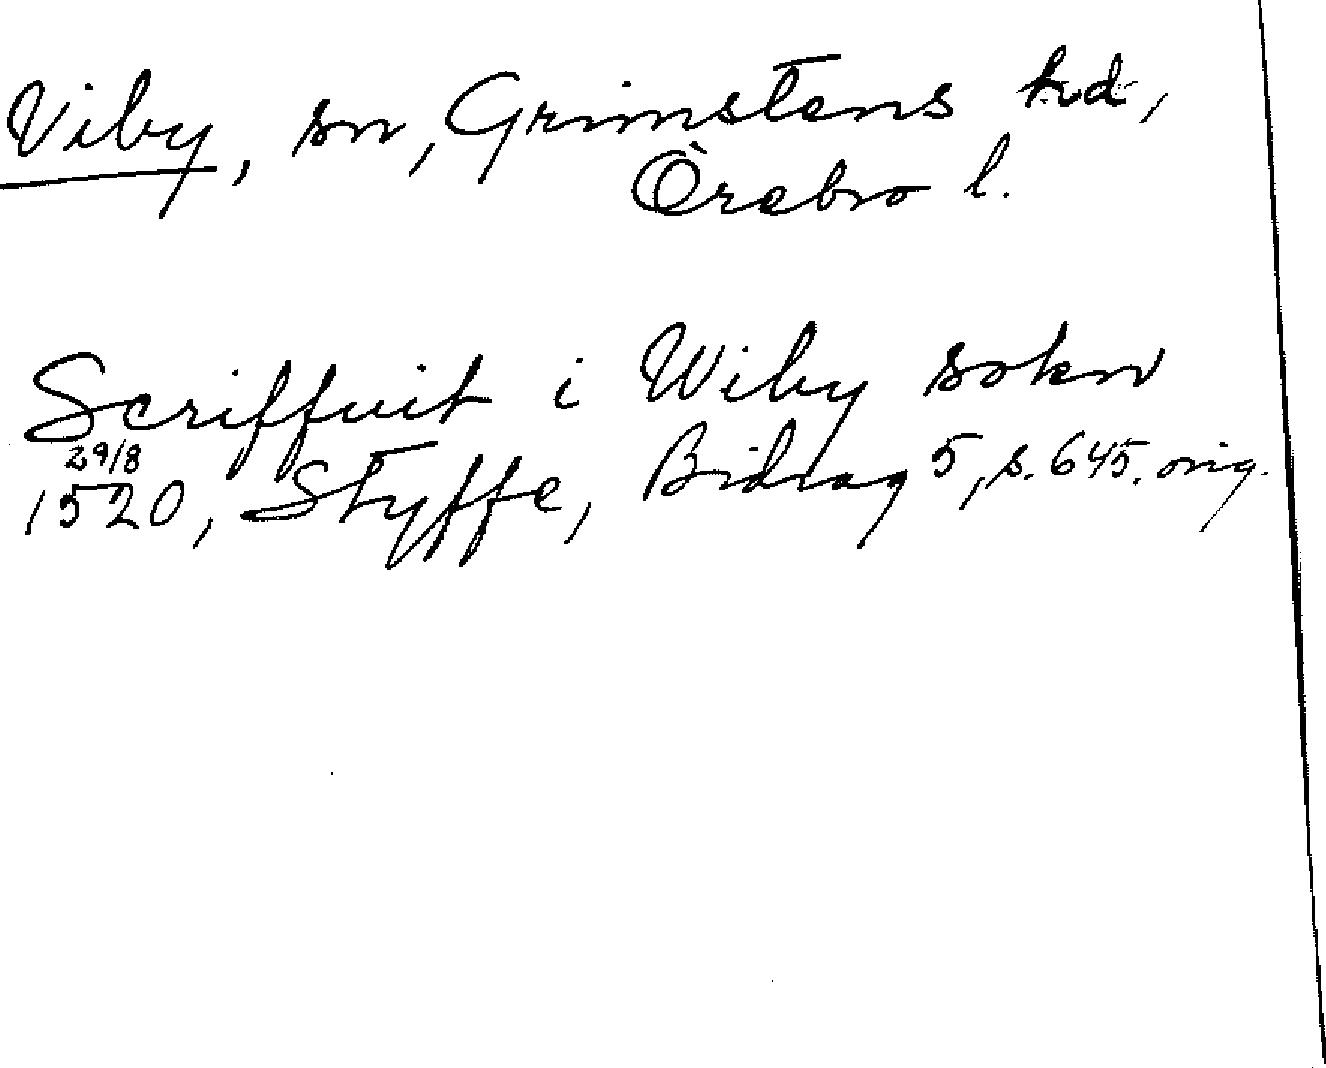 Viby, sn, Grimstens hd,
Örebro l.
Scriffuit i Wiby sokn
29/8
1520, Styffe, Bidrag 5, s. 645. orig.